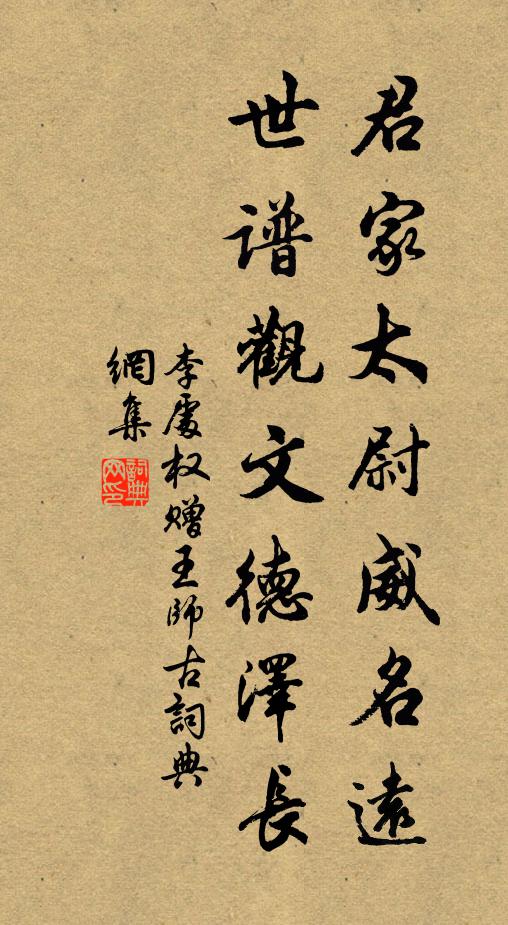 君家太尉威名遠
世谱觀文德澤長
李處权赠王師古詞典
網集
詞典網印